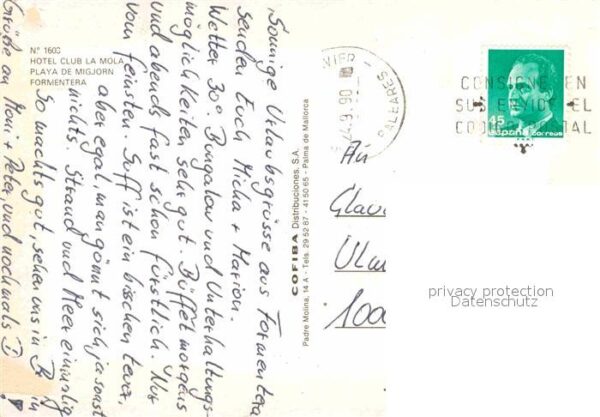 Nº 1606
HOTEL CLUB LA MOLA
PLAYA DE MIGJORN
FORMENTERA
Sonnige Urlaubsgrüsse aus Formentera
senden Euch Micha + Marion.
Wetter 30°. Bungalow und Unterhaltungs-
möglichkeiten sehr gut. Büffet morgens
und abends fast schon fürstlich. Nur
vom feinsten. Suff ist ein bisschen teuer,
aber egal, man gönnt sich ja sonst
nichts. Strand und Meer einmalig
So machts gut, sehen uns in
Grüße an Moni + Peter, und nochmals
COFIBA Distribuciones, S.A.
Padre Molina, 14 A - Tels. 29 52 87 - 41 50 65 - Palma de Mallorca
BALEARES
CONSIGNE EN
SU ENVIO EL
CODIGO POSTAL
45
España correos
An
Ulm
1000
privacy protection
Datenschutz